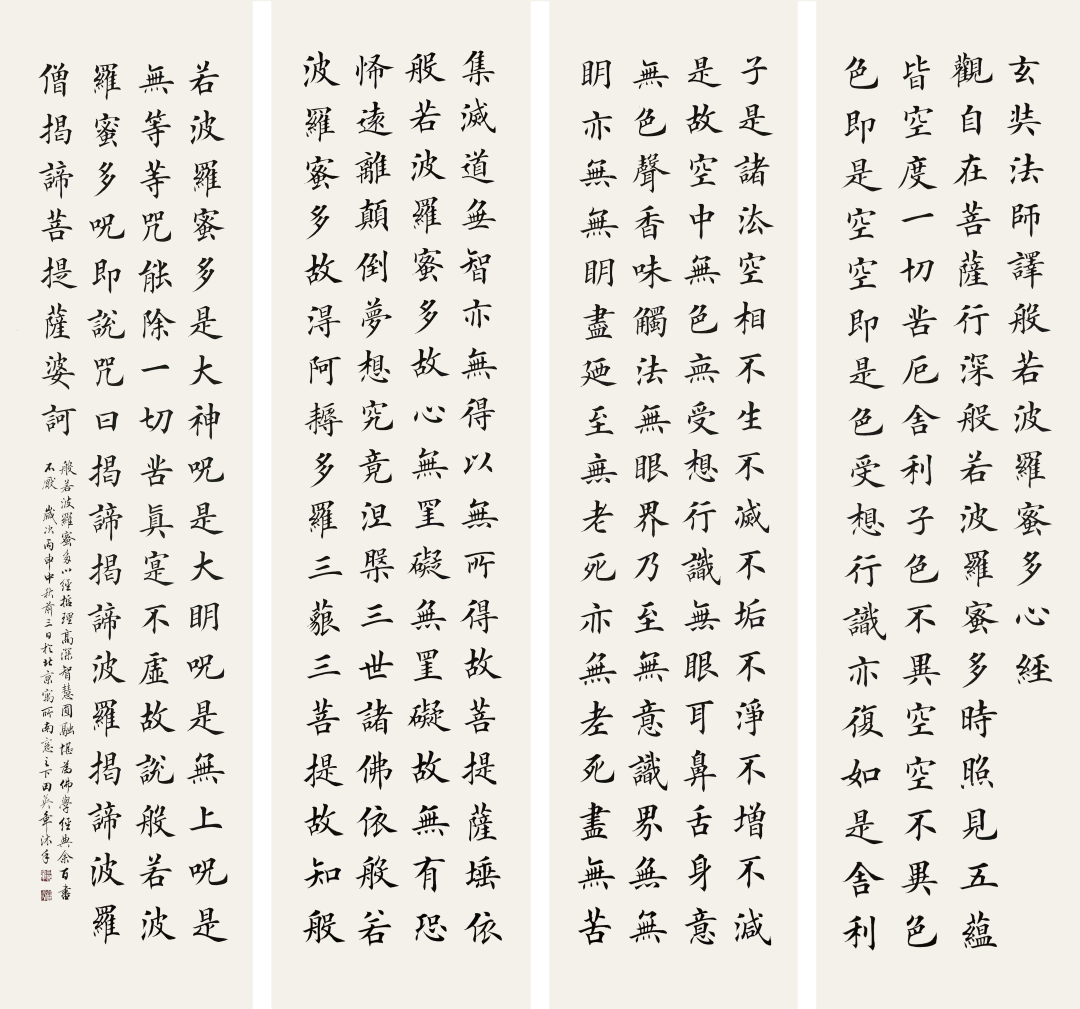 玄奘法師譯般若波羅蜜多心經
觀自在菩薩行深般若波羅蜜多時照見五蘊
皆空度一切苦厄舍利子色不異空空不異色
色即是空空即是色受想行識亦復如是舍利
子是諸法空相不生不滅不垢不淨不增不減
是故空中無色無受想行識無眼耳鼻舌身意
無色聲香味觸法無眼界乃至無意識界無無
眀亦無無眀盡廼至無老死亦無老死盡無苦
集滅道無智亦無得以無所得故菩提薩埵依
般若波羅蜜多故心無罣礙無罣礙故無有恐
怖遠離顛倒夢想究竟涅槃三世諸佛依般若
波羅蜜多故得阿耨多羅三藐三菩提故知般
若波羅蜜多是大神呪是大眀呪是無上呪是
無等等咒能除一切苦真寔不虛故說般若波
羅蜜多呪即說咒曰揭諦揭諦波羅揭諦波羅
僧揭諦菩提薩婆訶
般若波羅蜜多心經哲理高深智慧圓融堪為佛學經典余百書
不厭 歲次丙申中秋前三日於北京寓所南窗之下田英章沐手